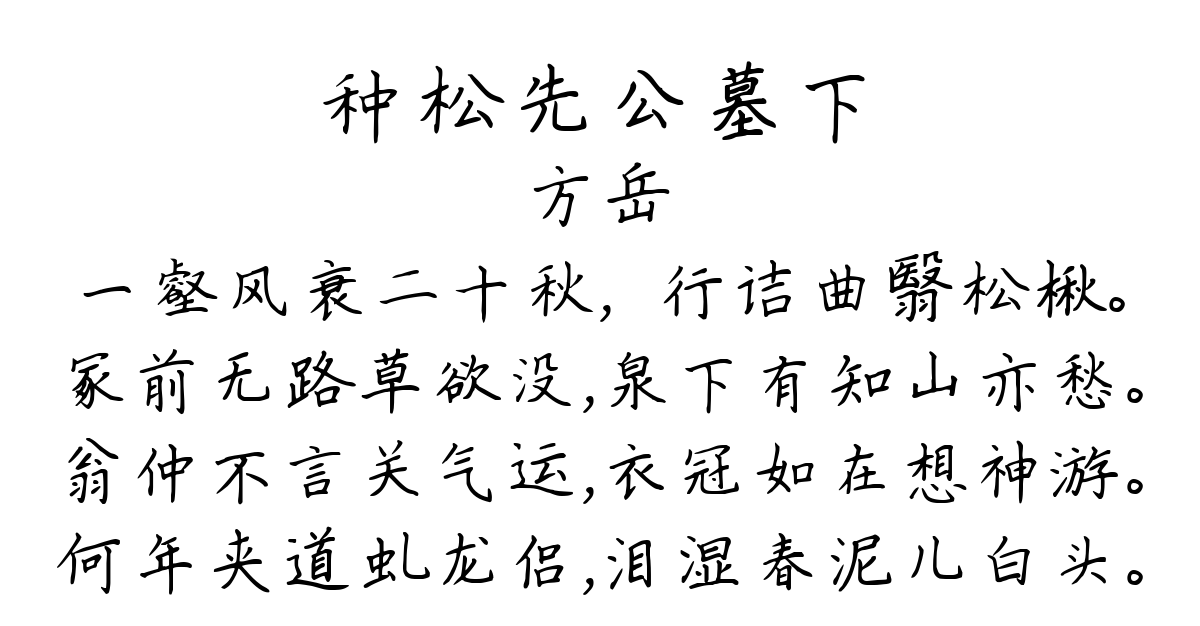 种松先公墓下
方岳
一壑风衰二十秋，行诘曲翳松楸。
冢前无路草欲没,泉下有知山亦愁。
翁仲不言关气运,衣冠如在想神游。
何年夹道虬龙侣,泪湿春泥儿白头。